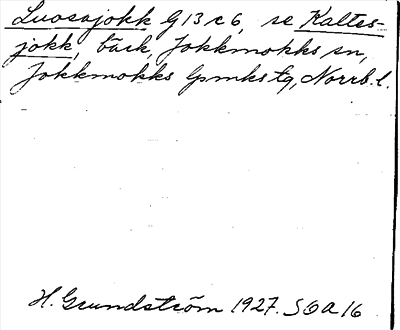 Luosajokk G13c6, se Kaltes-
jokk, bäck, Jokkmokks sn,
Jokkmokks lpmks tg, Norrb. l.
H. Grundström 1927. SOA 16